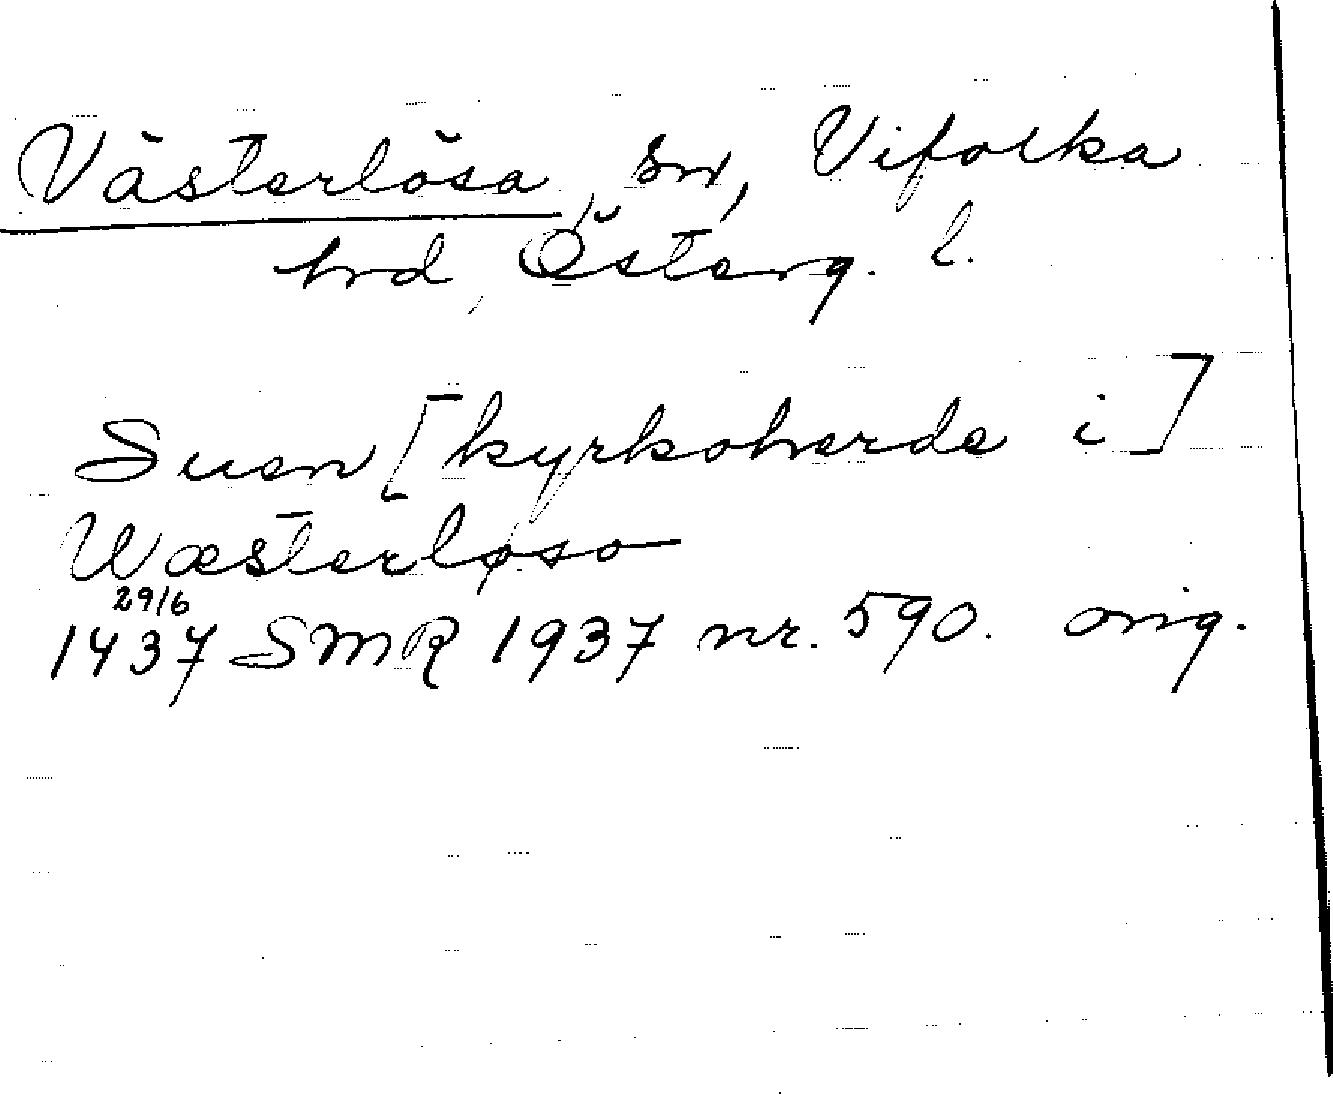 Västerlösa, sn, Vifolka
hrd, Österg. l.
Suen [kyrkoherde i]
Wæsterløso
29/6
1437 SMR 1937 nr. 590. orig.